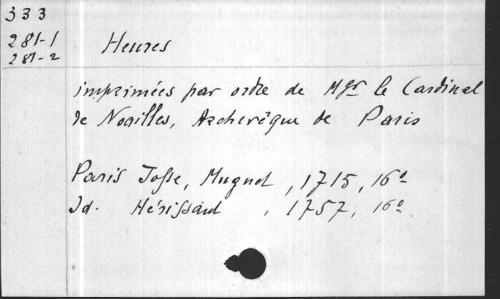 333
281-1
281-2
Heures
imprimées par ordre de Mgr le Cardinal
de Noailles, Archevêque de Paris
Paris Josse, Muguet, 1715, 16º
Id. Hérissant, 1757, 16º